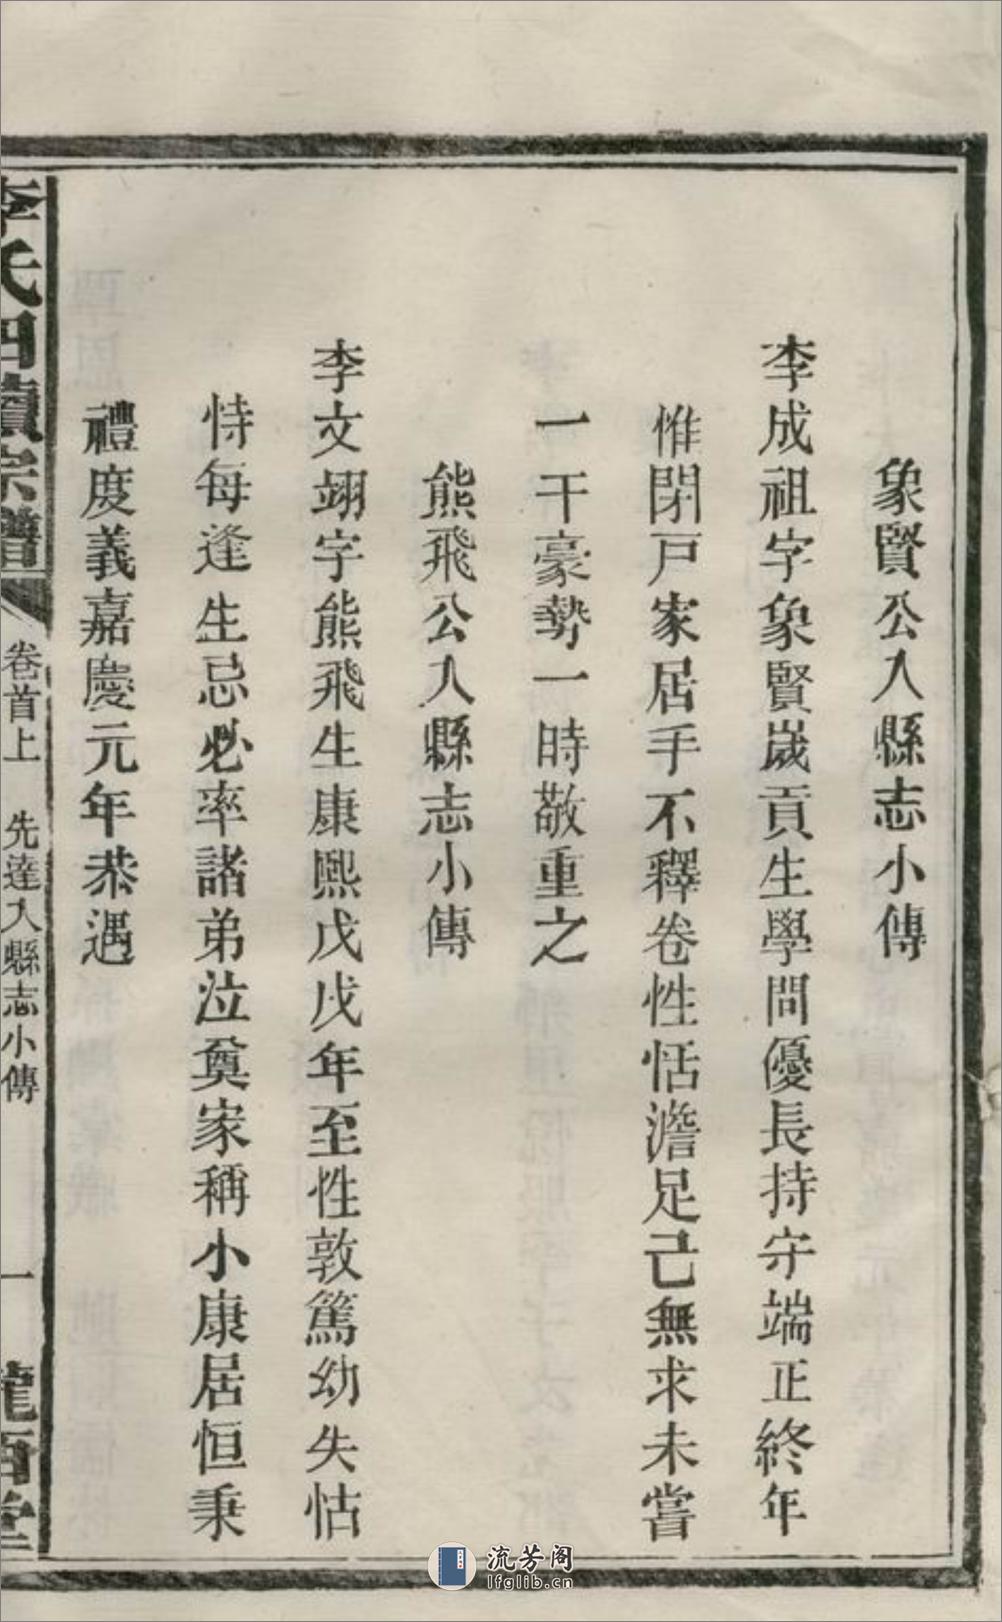 象賢公入縣志小傳
李成祖字象賢歲貢生學問優長持守端正終年
惟閉戸家居手不釋卷性恬澹足己無求未嘗
一干豪勢一時敬重之
熊飛公入縣志小傳
李文翊字熊飛生康熙戊戌年至性敦篤幼失怙
恃每逢生忌必率諸弟泣奠家稱小康居恒秉
禮度義嘉慶元年恭遇
李氏四續宗譜
卷首上 先達入縣志小傳
一
龍西堂
流芳阁
lfglib.cn